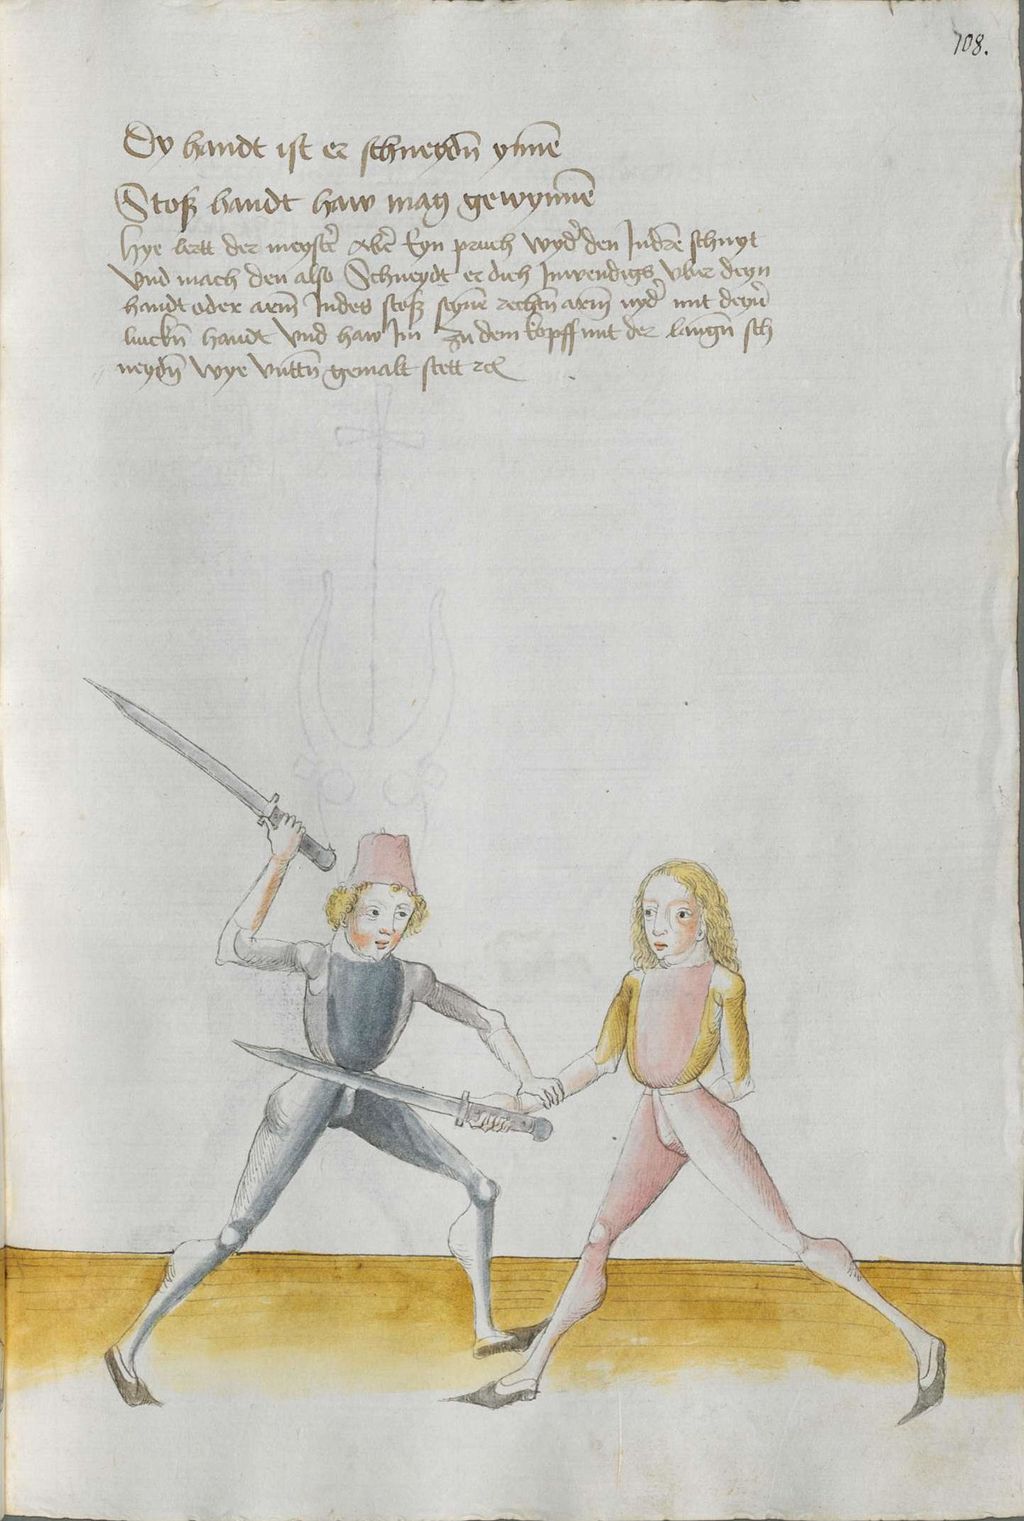 108.
Dy handt ist er schneydn̄ ynnē
Stoß handt haw mag gewynnē
Hye lertt der meystēr Abēr Eyn pruch wydēr den Indrē schnyt
Vnd mach den also Schneydt er dich Inwendigs vber deyn
handt oder arm̄ Indes stoß seynē rechtn̄ arm̄ nydēr mit deynēr
linckn̄ handt Vnd haw Im zu dem kopff mit der langn̄ sch
neydn̄ Wye Vnttn̄ gemalt stett